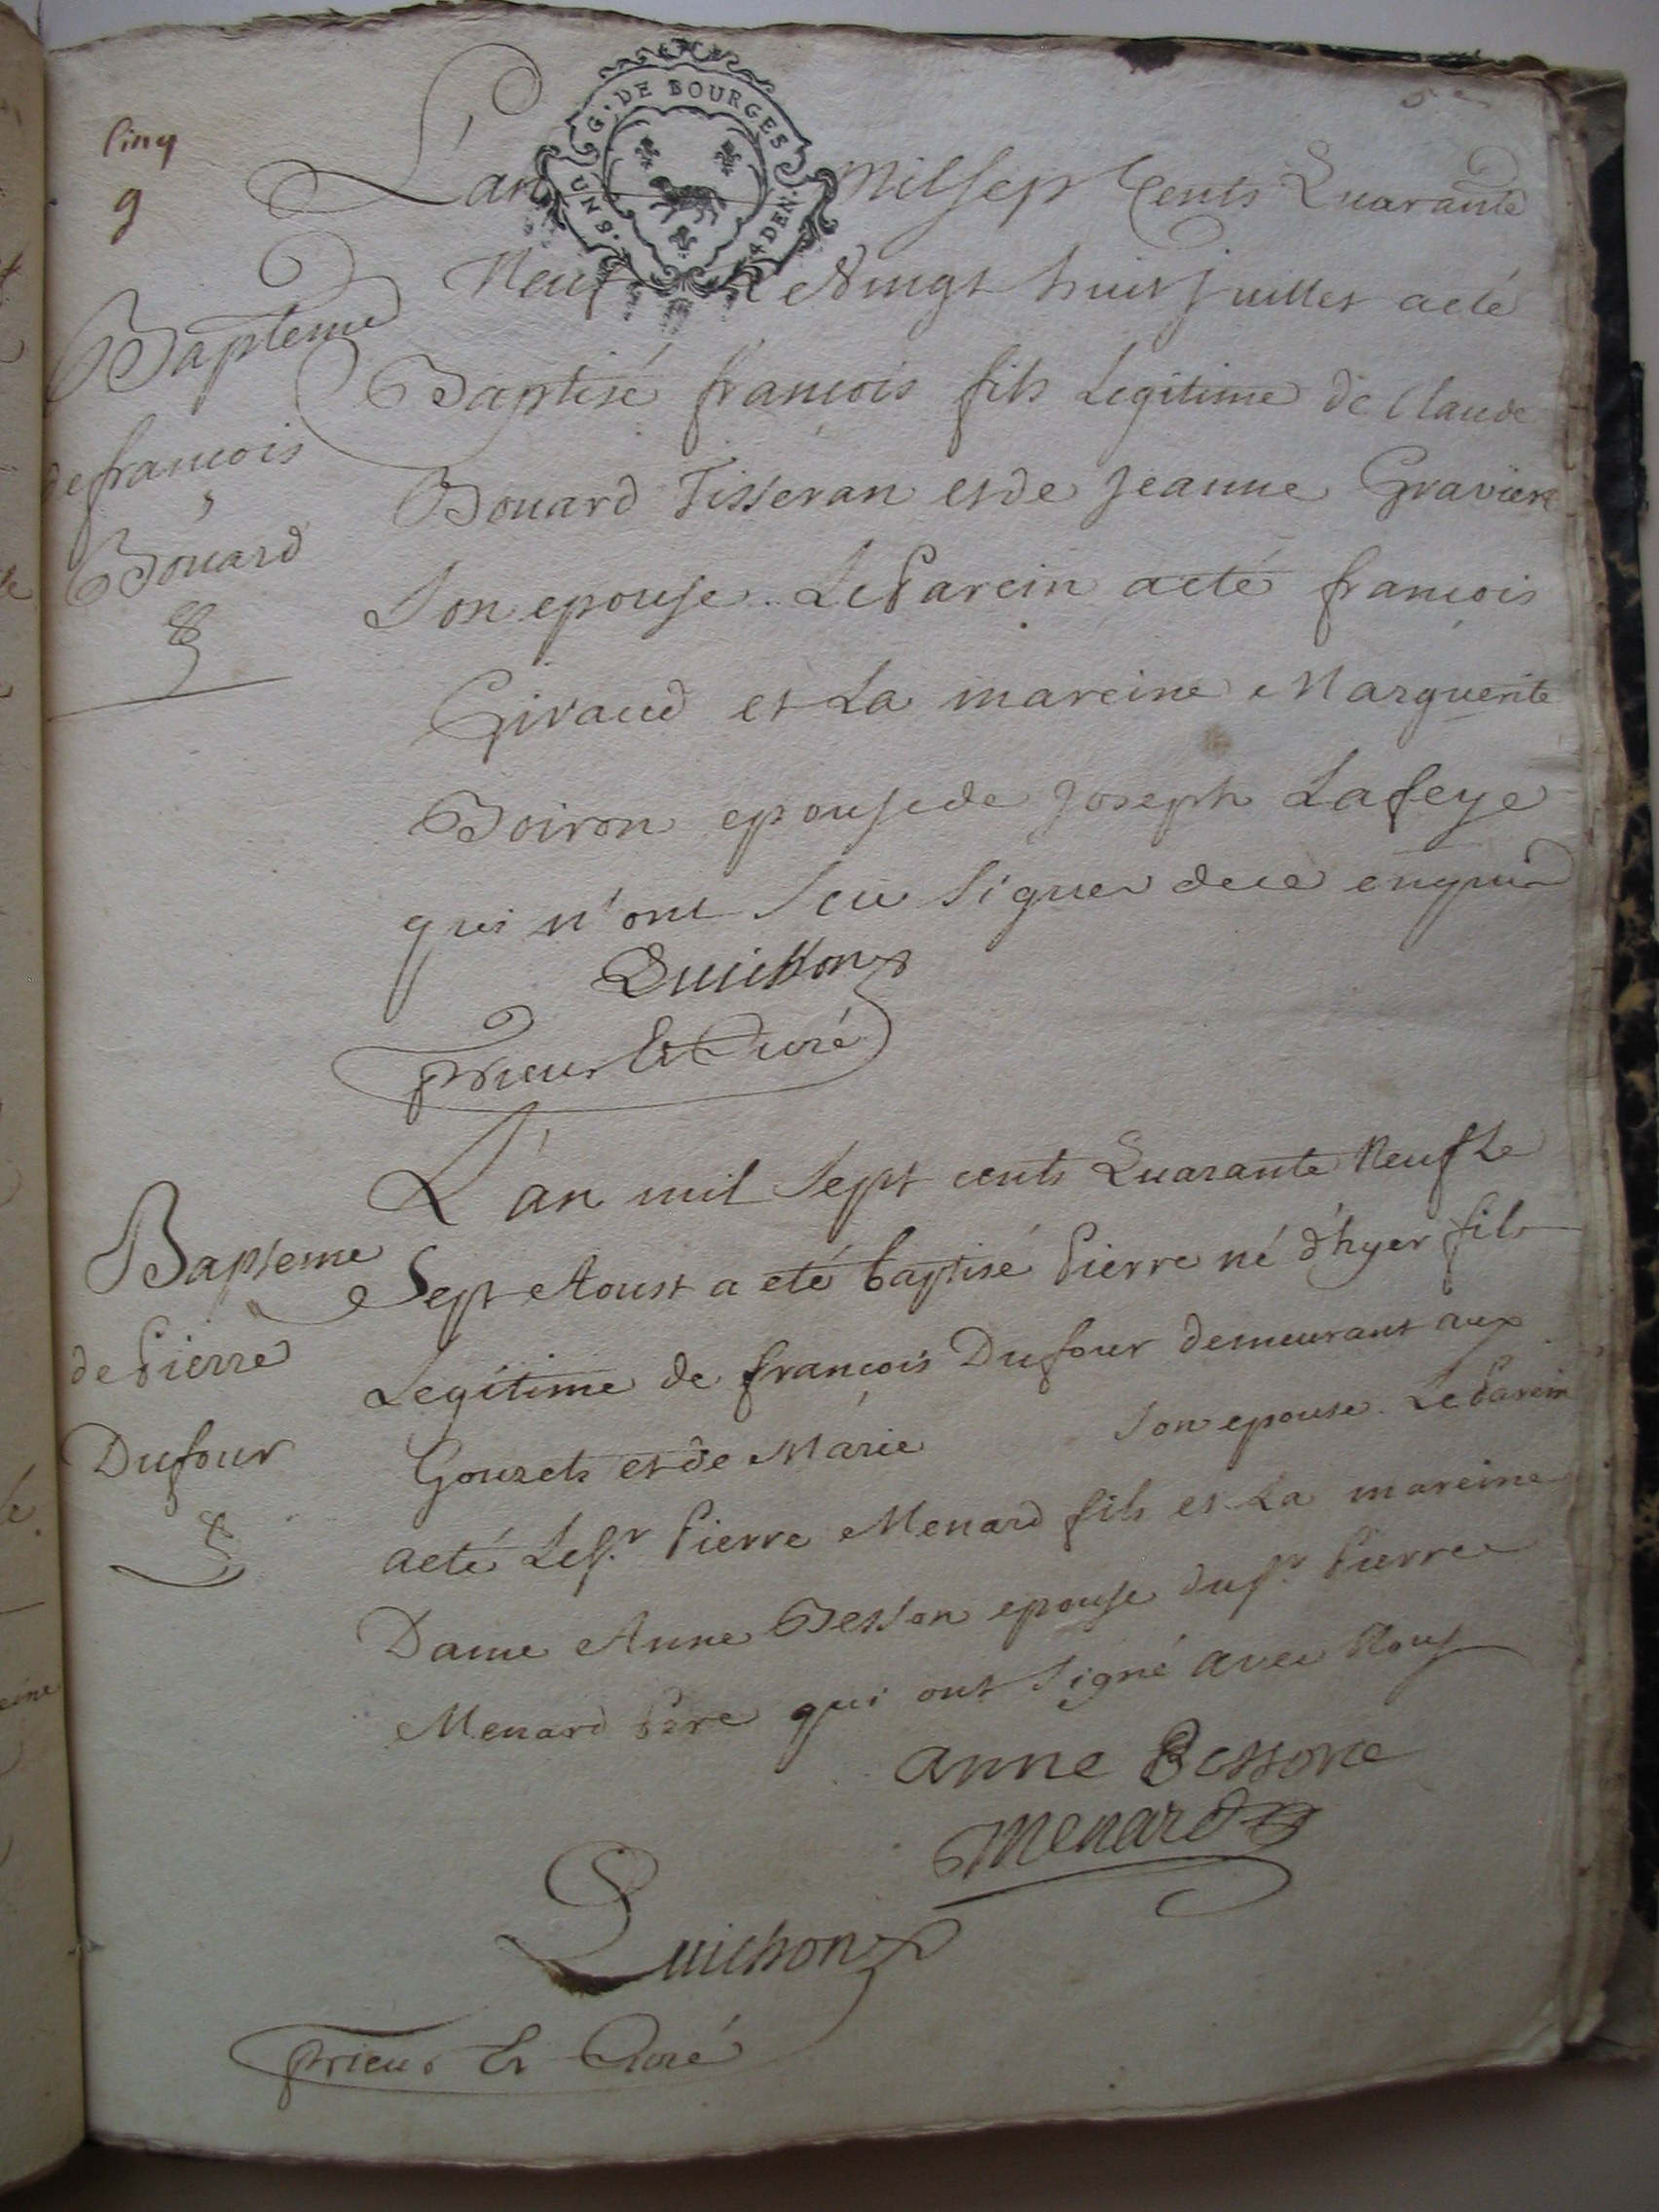 Cinq
9
5e
G. DE BOURGES
4 DEN.
L'an mil sept Cents Quarante
Neuf Le Vingt huit juillet a eté
Bapteme
Baptisé françois fils Legitime de Claude
de françois
Bouard Tisseran et de Jeanne Graviere
Bouard
Son epouse. Le Parein a eté françois
Giraud et La mareine Marguerite
Boiron epouse de Joseph Lafeye
qui n'ont Sceu Signer de ce enquis
Quichon
Prieur Et Curé
L'an mil Sept cents Quarante Neuf Le
Bapteme
Sept Aoust a eté baptisé Pierre né d'hyer fils
de Pierre
Legitime de françois Dufour demeurant aux
Dufour
Gouzets et de Marie Son epouse. Le Parein
a eté Le Sr. Pierre Menard fils et La mareine
Dame Anne Besson epouse du Sr. Pierre
Menard Pere qui ont Signé avec Nous
anne Bessone
Menard
Quichon
Prieur Et Curé